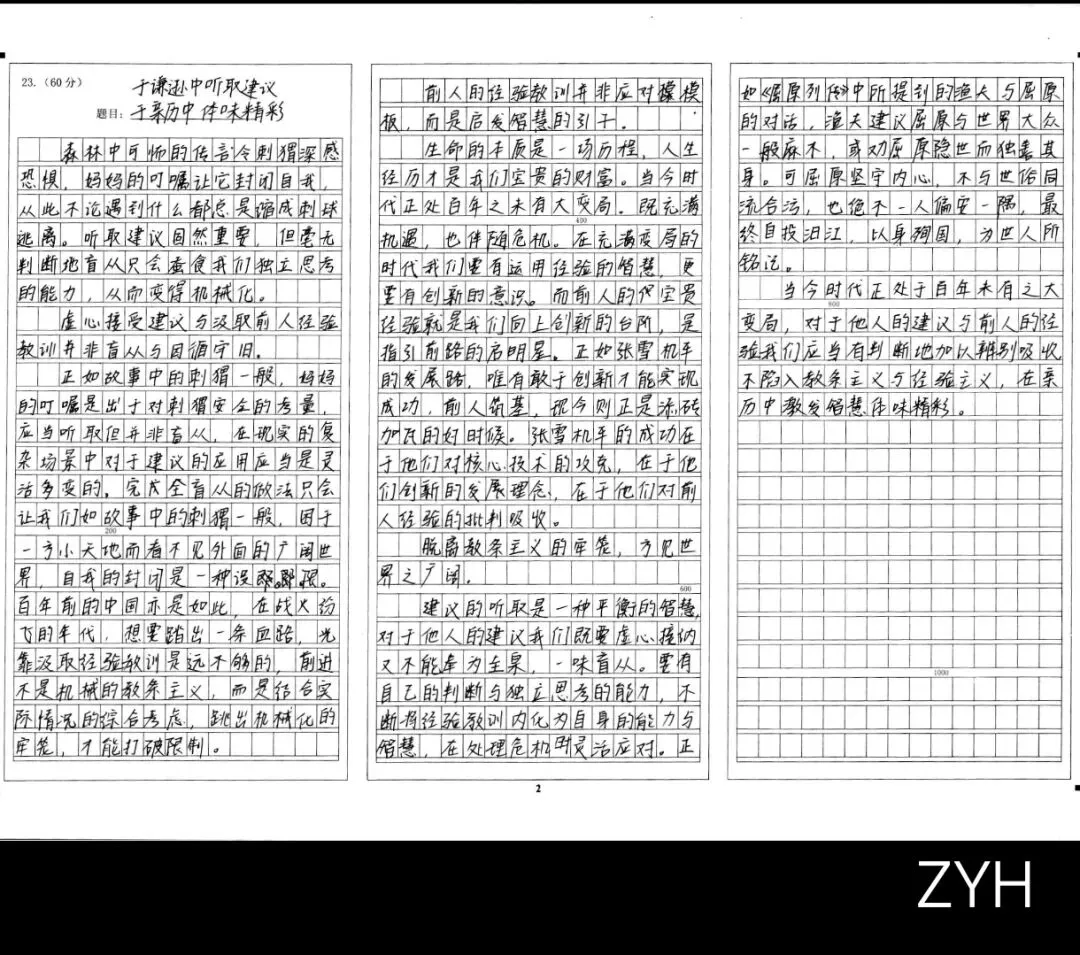 23.（60分）
于谦逊中听取建议
题目：于亲历中体味精彩
森林中可怖的传言令刺猬深感
恐惧，妈妈的叮嘱让它封闭自我，
从此不论遇到什么都总是缩成刺球
逃离。听取建议固然重要，但毫无
判断地盲从只会蚕食我们独立思考
的能力，从而变得机械化。
虚心接受建议与汲取前人经验
教训并非盲从与因循守旧。
正如故事中的刺猬一般，妈妈
的叮嘱是出于对刺猬安全的考量，
应当听取但并非盲从，在现实的复
杂场景中对于建议的应用应当是灵
活多变的。完全盲从的做法只会
让我们如故事中的刺猬一般，困于
200
一方小天地而看不见外面的广阔世
界，自我的封闭是一种设限。
百年前的中国亦是如此，在战火纷
飞的年代，想要踏出一条血路，光
靠汲取经验教训是远不够的，前进
不是机械的教条主义，而是结合实
际情况的综合考虑，跳出机械化的
牢笼，才能打破限制。
前人的经验教训并非应对模
板，而是启发智慧的引子。
生命的本质是一场历程，人生
经历才是我们宝贵的财富。当今时
代正处百年之未有大变局。既充满
400
机遇，也伴随危机。在充满变局的
时代我们要有运用经验的智慧，更
要有创新的意识。而前人的宝贵
经验就是我们向上创新的台阶，是
指引前路的启明星。正如张雪机车
的发展路，唯有敢于创新才能实现
成功，前人筑基，现今则正是添砖
加瓦的好时候。张雪机车的成功在
于他们对核心技术的攻克，在于他
们创新的发展理念，在于他们对前
人经验的批判吸收。
脱离教条主义的牢笼，方见世
界之广阔。
600
建议的听取是一种平衡的智慧，
对于他人的建议我们既要虚心接纳
又不能奉为圭臬，一味盲从。要有
自己的判断与独立思考的能力，不
断将经验教训内化为自身的能力与
智慧，在处理危机时灵活应对。正
2
如《屈原列传》中所提到的渔夫与屈原
的对话，渔夫建议屈原与世界大众
一般麻木，或劝屈原隐世而独善其
身。可屈原坚守内心，不与世俗同
流合污，也绝不一人偏安一隅，最
终自投汨江，以身殉国，为世人所
铭记。
当今时代正处于百年未有之大
800
变局，对于他人的建议与前人的经
验我们应当有判断地加以辨别吸收，
不陷入教条主义与经验主义，在亲
历中激发智慧体味精彩。
1000
ZYH